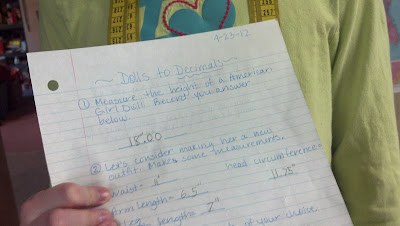 9-23-12
Dolls to Decimals
① Measure the height of a American
Girl Doll. Record you answer
below.
18.00
② Let's consider making her a new
outfit. Make some measurements.
waist= 11" head circumference=
Arm length= 6.5" 11.25"
Leg length= 7"
of your choice